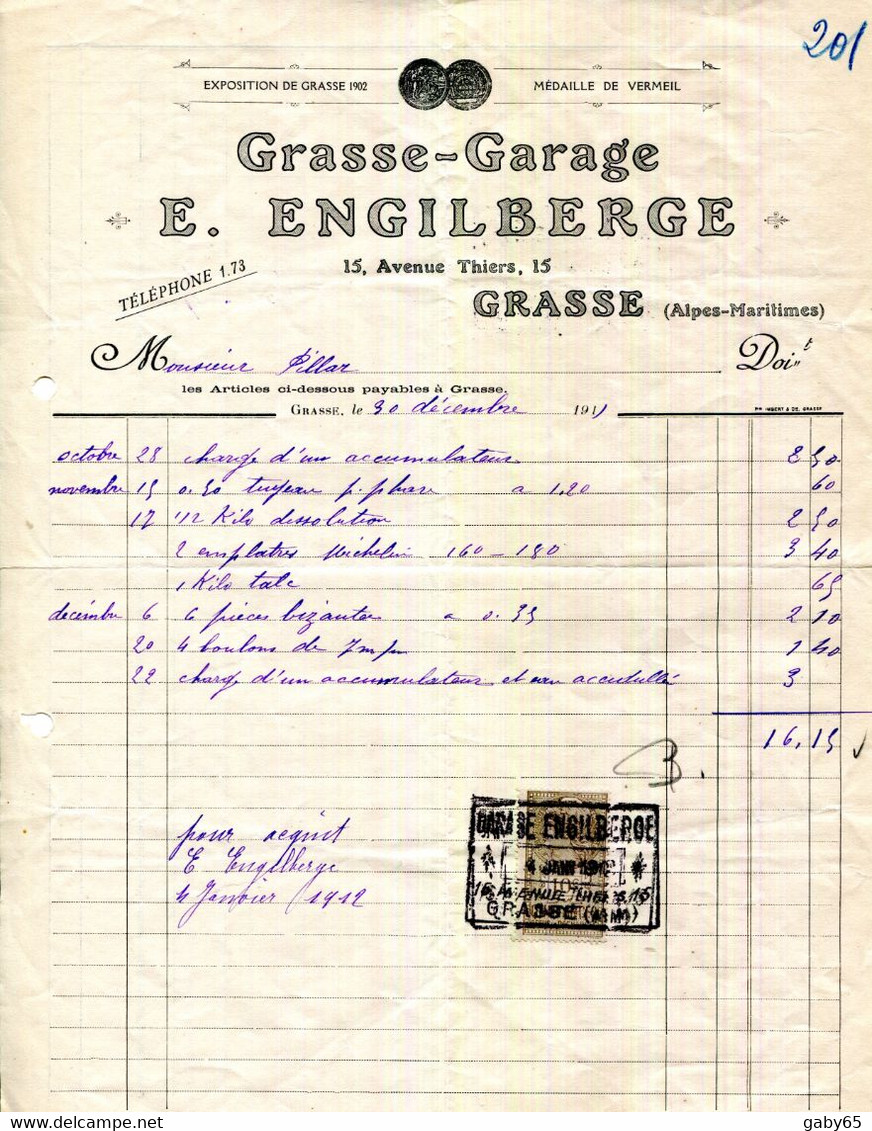 201
EXPOSITION DE GRASSE 1902 MÉDAILLE DE VERMEIL
Grasse-Garage
E. ENGILBERGE
15, Avenue Thiers, 15
TÉLÉPHONE 1.73
GRASSE (Alpes-Maritimes)
Monsieur Pillar Doit
les Articles ci-dessous payables à Grasse.
GRASSE, le 30 décembre 1911
octobre 28 charge d'un accumulateur 2 50
novembre 15 0.50 tuyeau p. phare a 1,20 60
17 1/2 Kilo dissolution 2 50
2 emplatres Michelin 160 - 180 3 40
1 Kilo talc 65
décémbre 6 6 pièces a 0.35 2 10
20 4 boulons de 7 m/m 1 40
22 charge d'un accumulateur et eau 3
16,15
pour acquit
E Engilberge
4 Janvier 1912
GARAGE ENGILBERGE
4 JANV 1912
15 AVENUE THIERS 15
GRASSE (A.M)
delcampe.net
gaby65